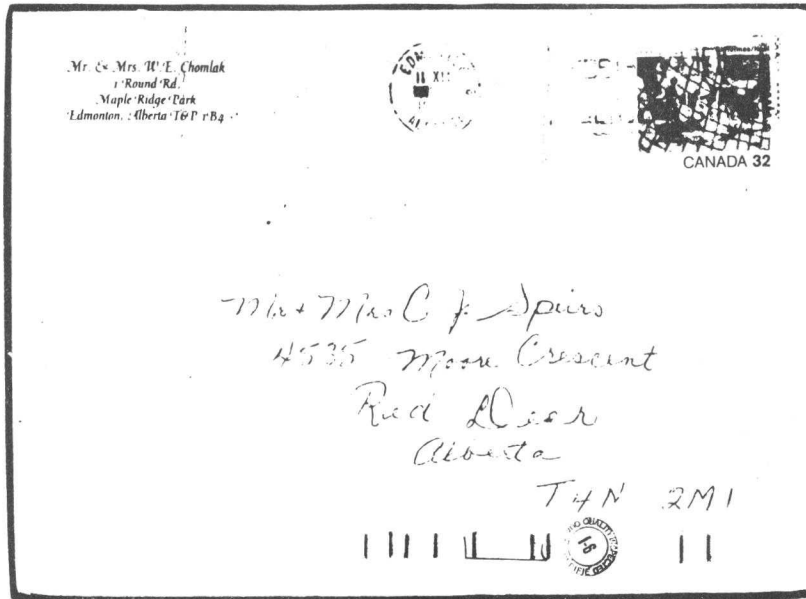 Mr. & Mrs. W. E. Chomlak
1 Round Rd.
Maple Ridge Park
Edmonton, Alberta T6P 1B4
EDM
11 XII
CANADA 32
Mr + Mrs C J Spiers
4535 Moore Crescent
Red Deer
Alberta
T4N 2M1
QUALITY